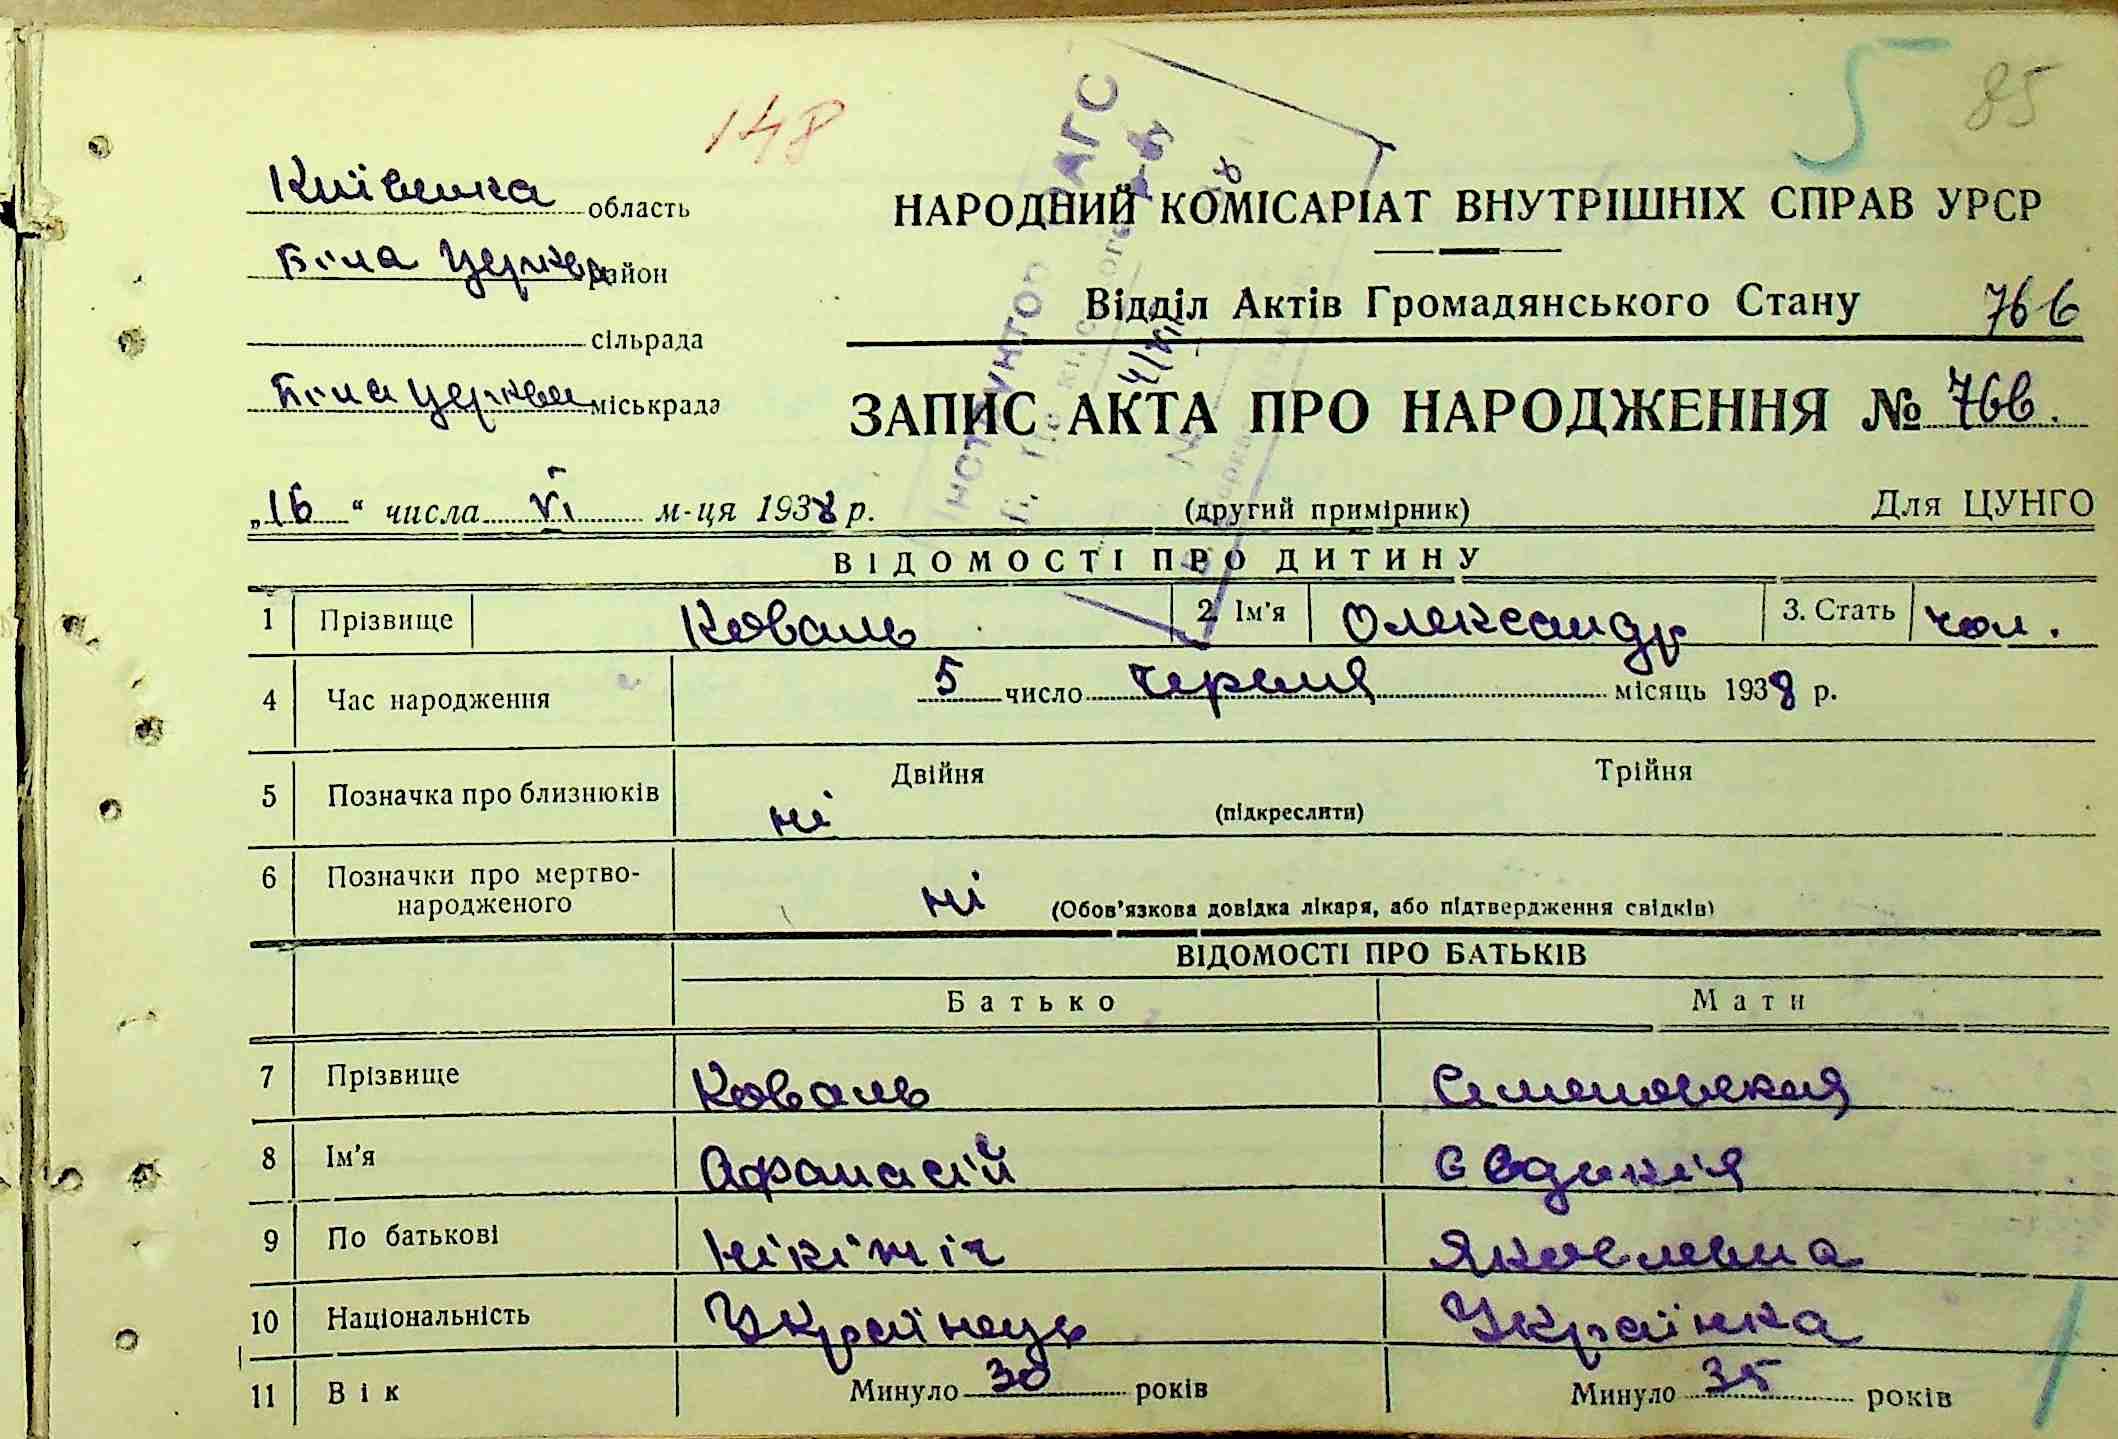 5 85
148
Київська область
НАРОДНИЙ КОМІСАРІАТ ВНУТРІШНІХ СПРАВ УРСР
Біла Церква район
Відділ Актів Громадянського Стану 766
сільрада
Біла Церква міськрада
ЗАПИС АКТА ПРО НАРОДЖЕННЯ № 766.
„16“ числа VI м-ця 1938 р. (другий примірник) Для ЦУНГО
ВІДОМОСТІ ПРО ДИТИНУ
1 Прізвище Коваль 2. Ім'я Олександр 3. Стать чол.
4 Час народження 5 число Червня місяць 1938 р.
Двійня Трійня
5 Позначка про близнюків ні (підкреслити)
6 Позначки про мертво-
народженого ні (Обов'язкова довідка лікаря, або підтвердження свідків)
ВІДОМОСТІ ПРО БАТЬКІВ
Батько Мати
7 Прізвище Коваль Семеновская
8 Ім'я Афанасій Євдикія
9 По батькові Нікітіч Яковлевна
10 Національність Українець Українка
11 Вік Минуло 30 років Минуло 35 років